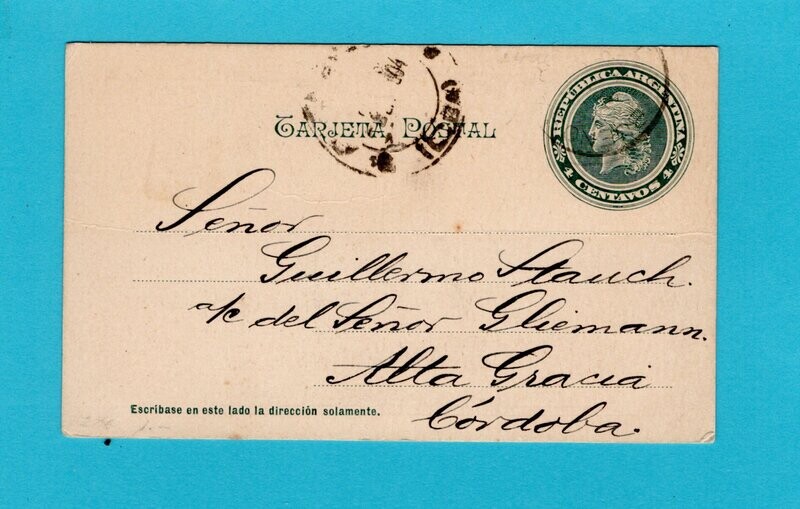 TARJETA POSTAL
REPÚBLICA ARGENTINA
4 CENTAVOS 4
Señor
Guillermo Stauch.
a/c del Señor Gliemann.
Alta Gracia
Córdoba.
Escríbase en este lado la dirección solamente.